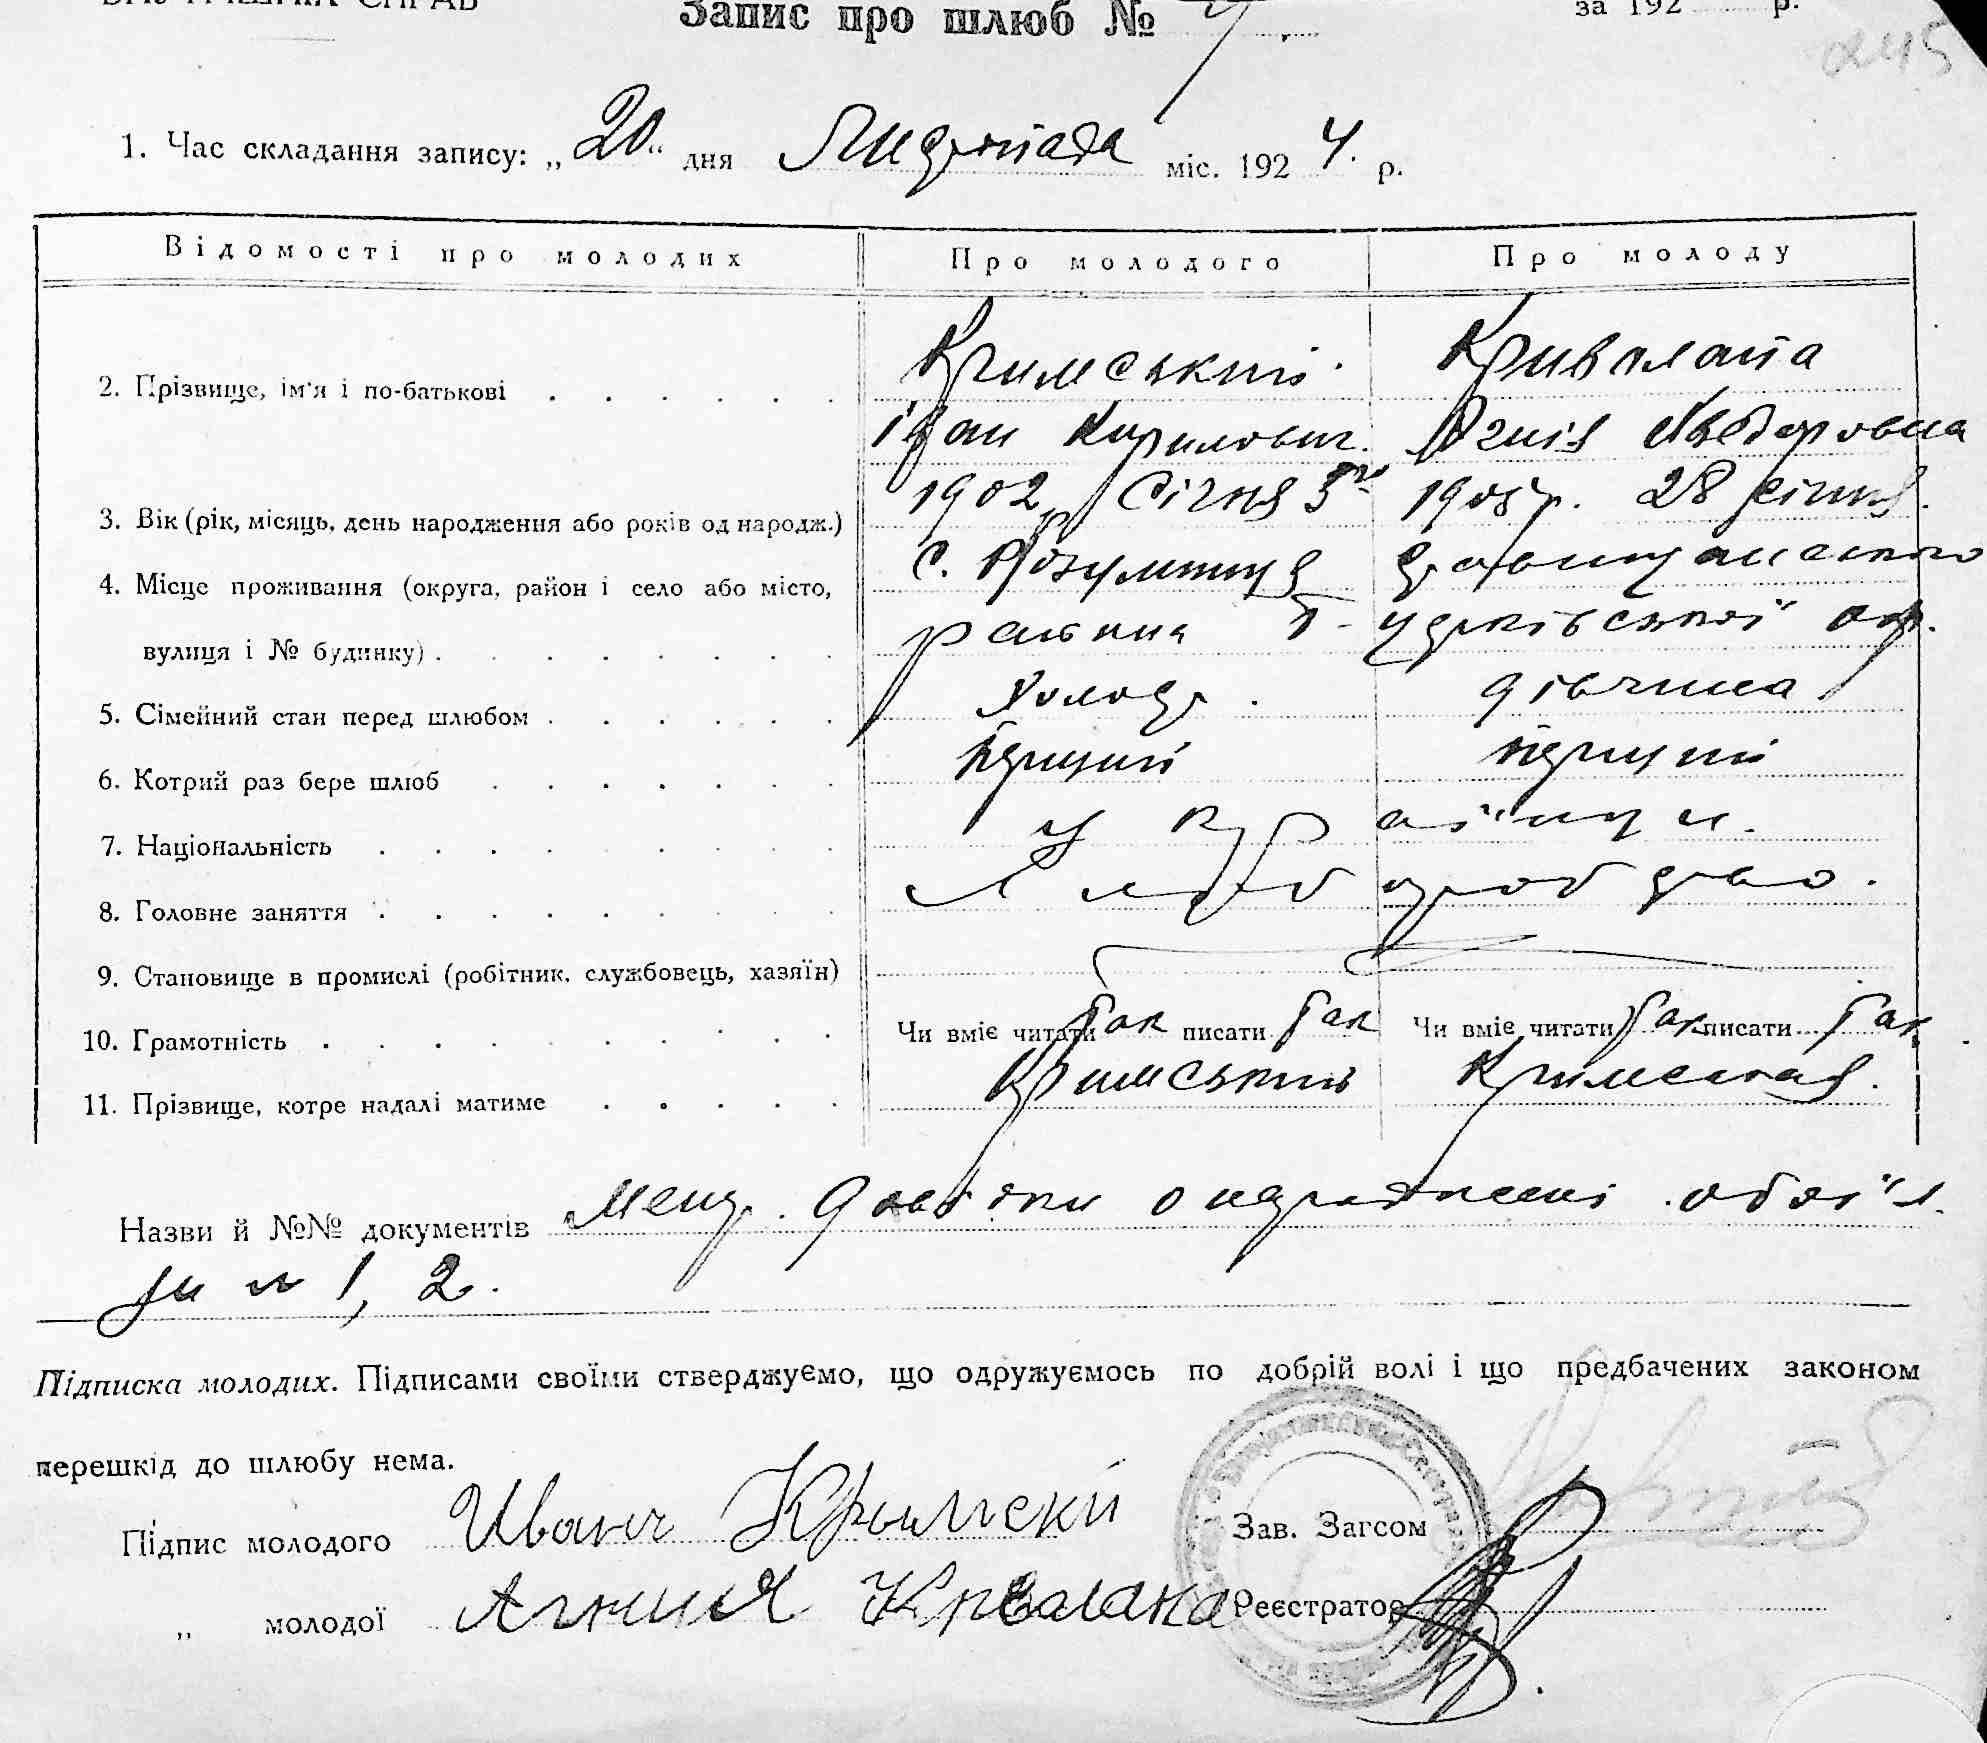 Запис про шлюб №
за 192 р.
245
1. Час складання запису: „20“ дня Листопада міс. 1924. р.
Відомості про молодих Про молодого Про молоду
2. Прізвище, ім'я і по-батькові Кримський Криволапа
Іван Кирилович Агнія Хведоровна
3. Вік (рік, місяць, день народження або років од народж.) 1902 р Січня 3го 1905 р. 28 січня.
4. Місце проживання (округа, район і село або місто, с.
вулиця і № будинку) района Б-церківської окр.
5. Сімейний стан перед шлюбом холост. дівчина
6. Котрий раз бере шлюб перший перший
7. Національність українци.
8. Головне заняття хліборобство.
9. Становище в промислі (робітник, службовець, хазяїн)
10. Грамотність Чи вміє читати так писати так Чи вміє читати так писати так
11. Прізвище, котре надалі матиме Кримський Кримская.
Назви й №№ документів
№ 1, 2.
Підписка молодих. Підписами своїми стверджуємо, що одружуємось по добрій волі і що предбачених законом
перешкід до шлюбу нема.
Підпис молодого Иван Крымский
Зав. Загсом
„ молодої Агния
Реєстратор